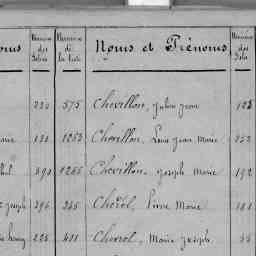 oms Numéros des Folios Numéros de la liste Noms et Prénoms Numéros des Folios
220 575 Chevillon, Julien Jean 125
1253 Chevillon, Louis Jean Marie 252
390 1265 Chevillon, Joseph Marie 192
Joseph 296 245 Chorel, Pierre Marie 181
225 421 Chorel, Marie Joseph